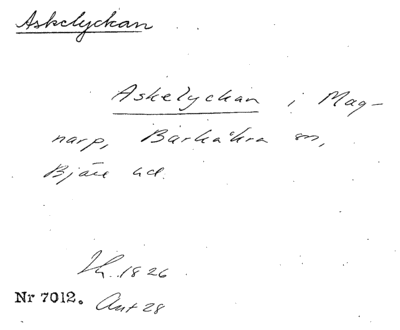 Askelyckan
Askelyckan i Mag-
narp, Barkåkra sn,
Bjäre hd.
1826
Nr 7012. Ant 28